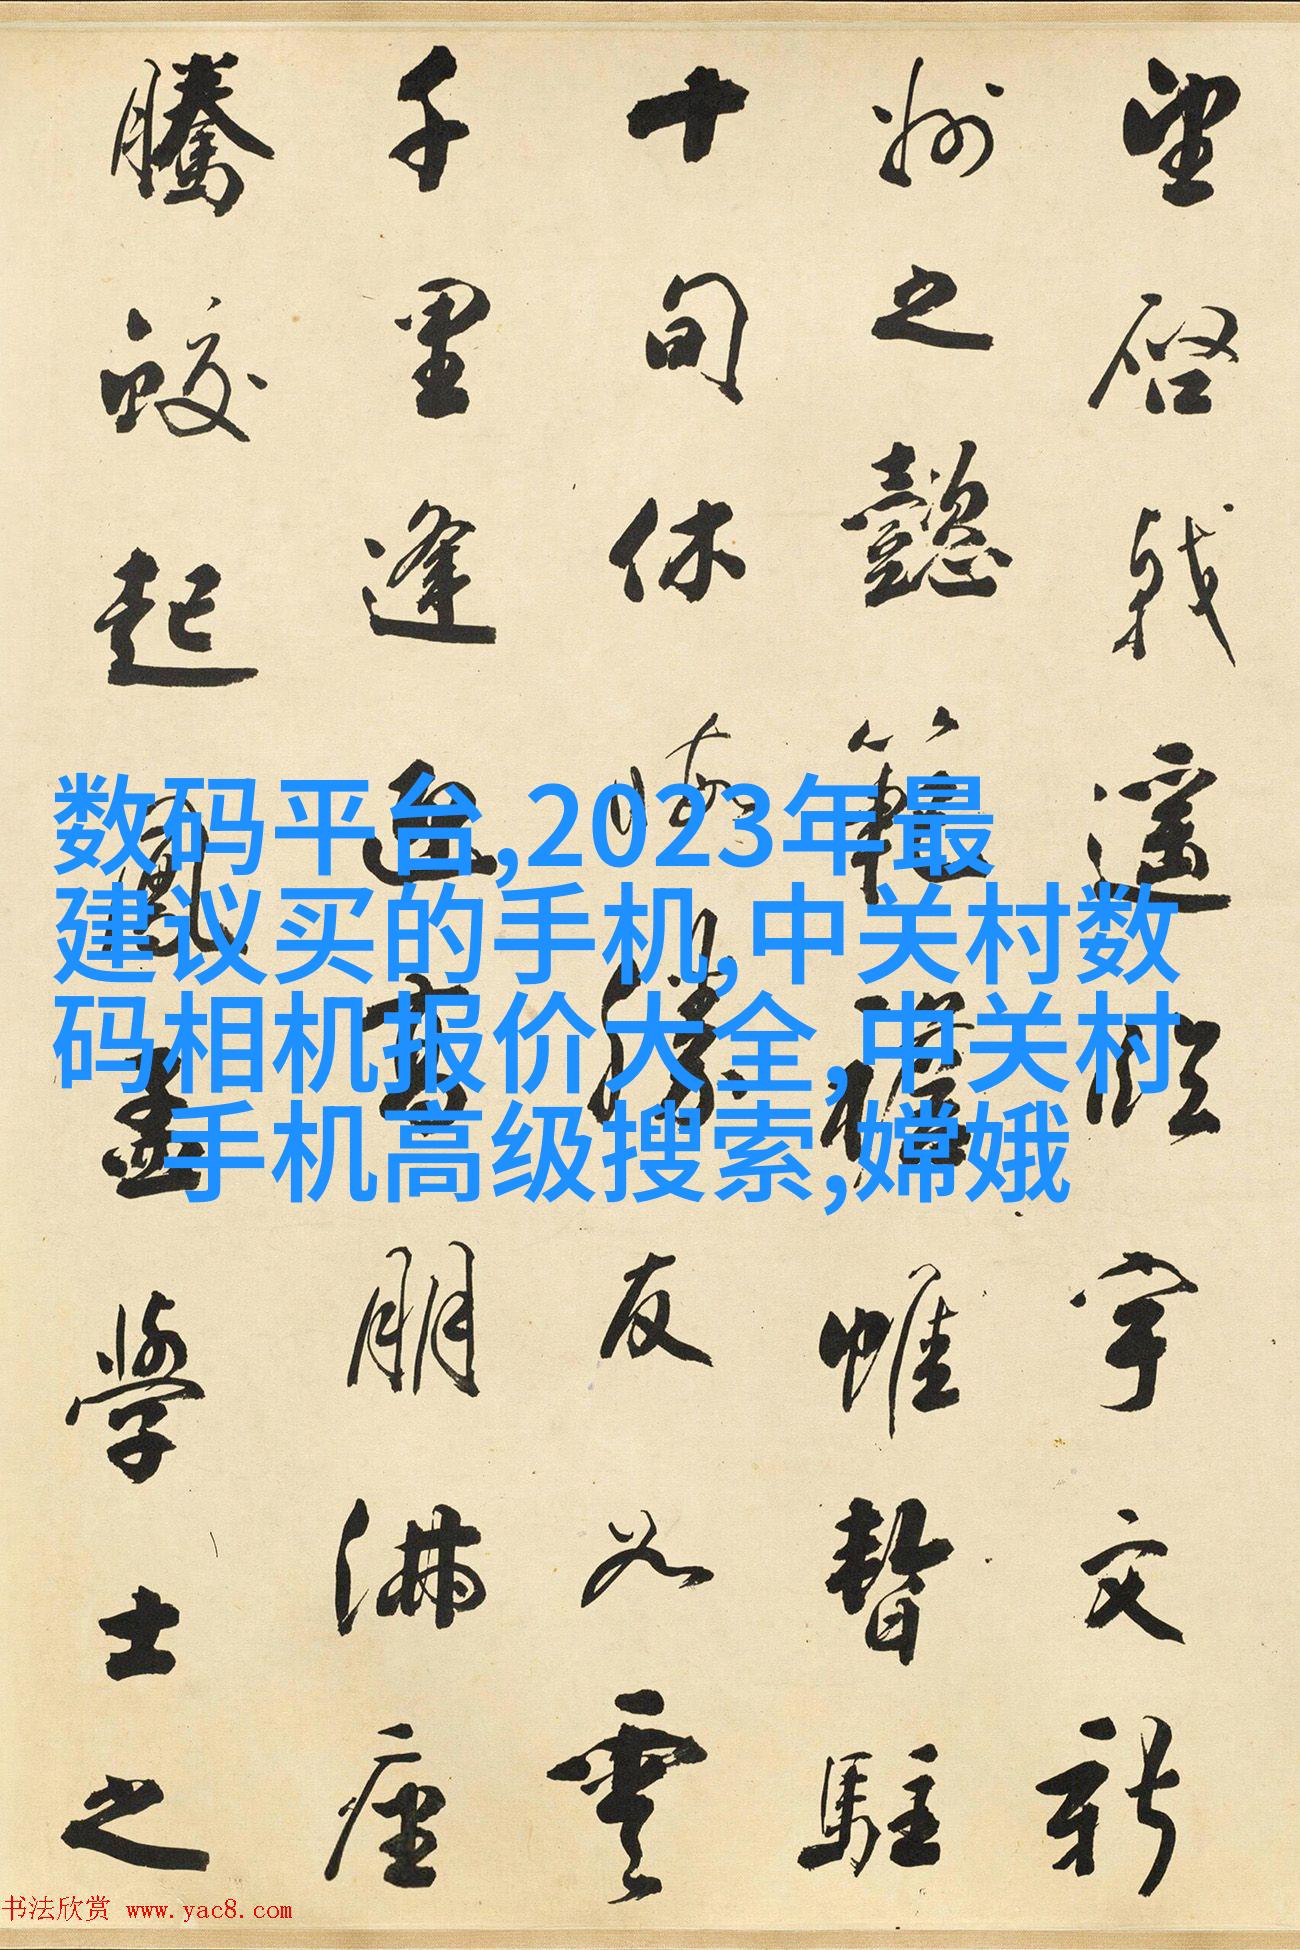 望啓戟遥臨宇文新
州之懿範襜帷暫駐
十旬休暇勝友如雲
千里逢迎高朋滿座
騰蛟起鳳孟學士之
数码平台,2023年最
建议买的手机,中关村数
码相机报价大全,中关村
手机高级搜索,嫦娥
书法欣赏 www.yac8.com